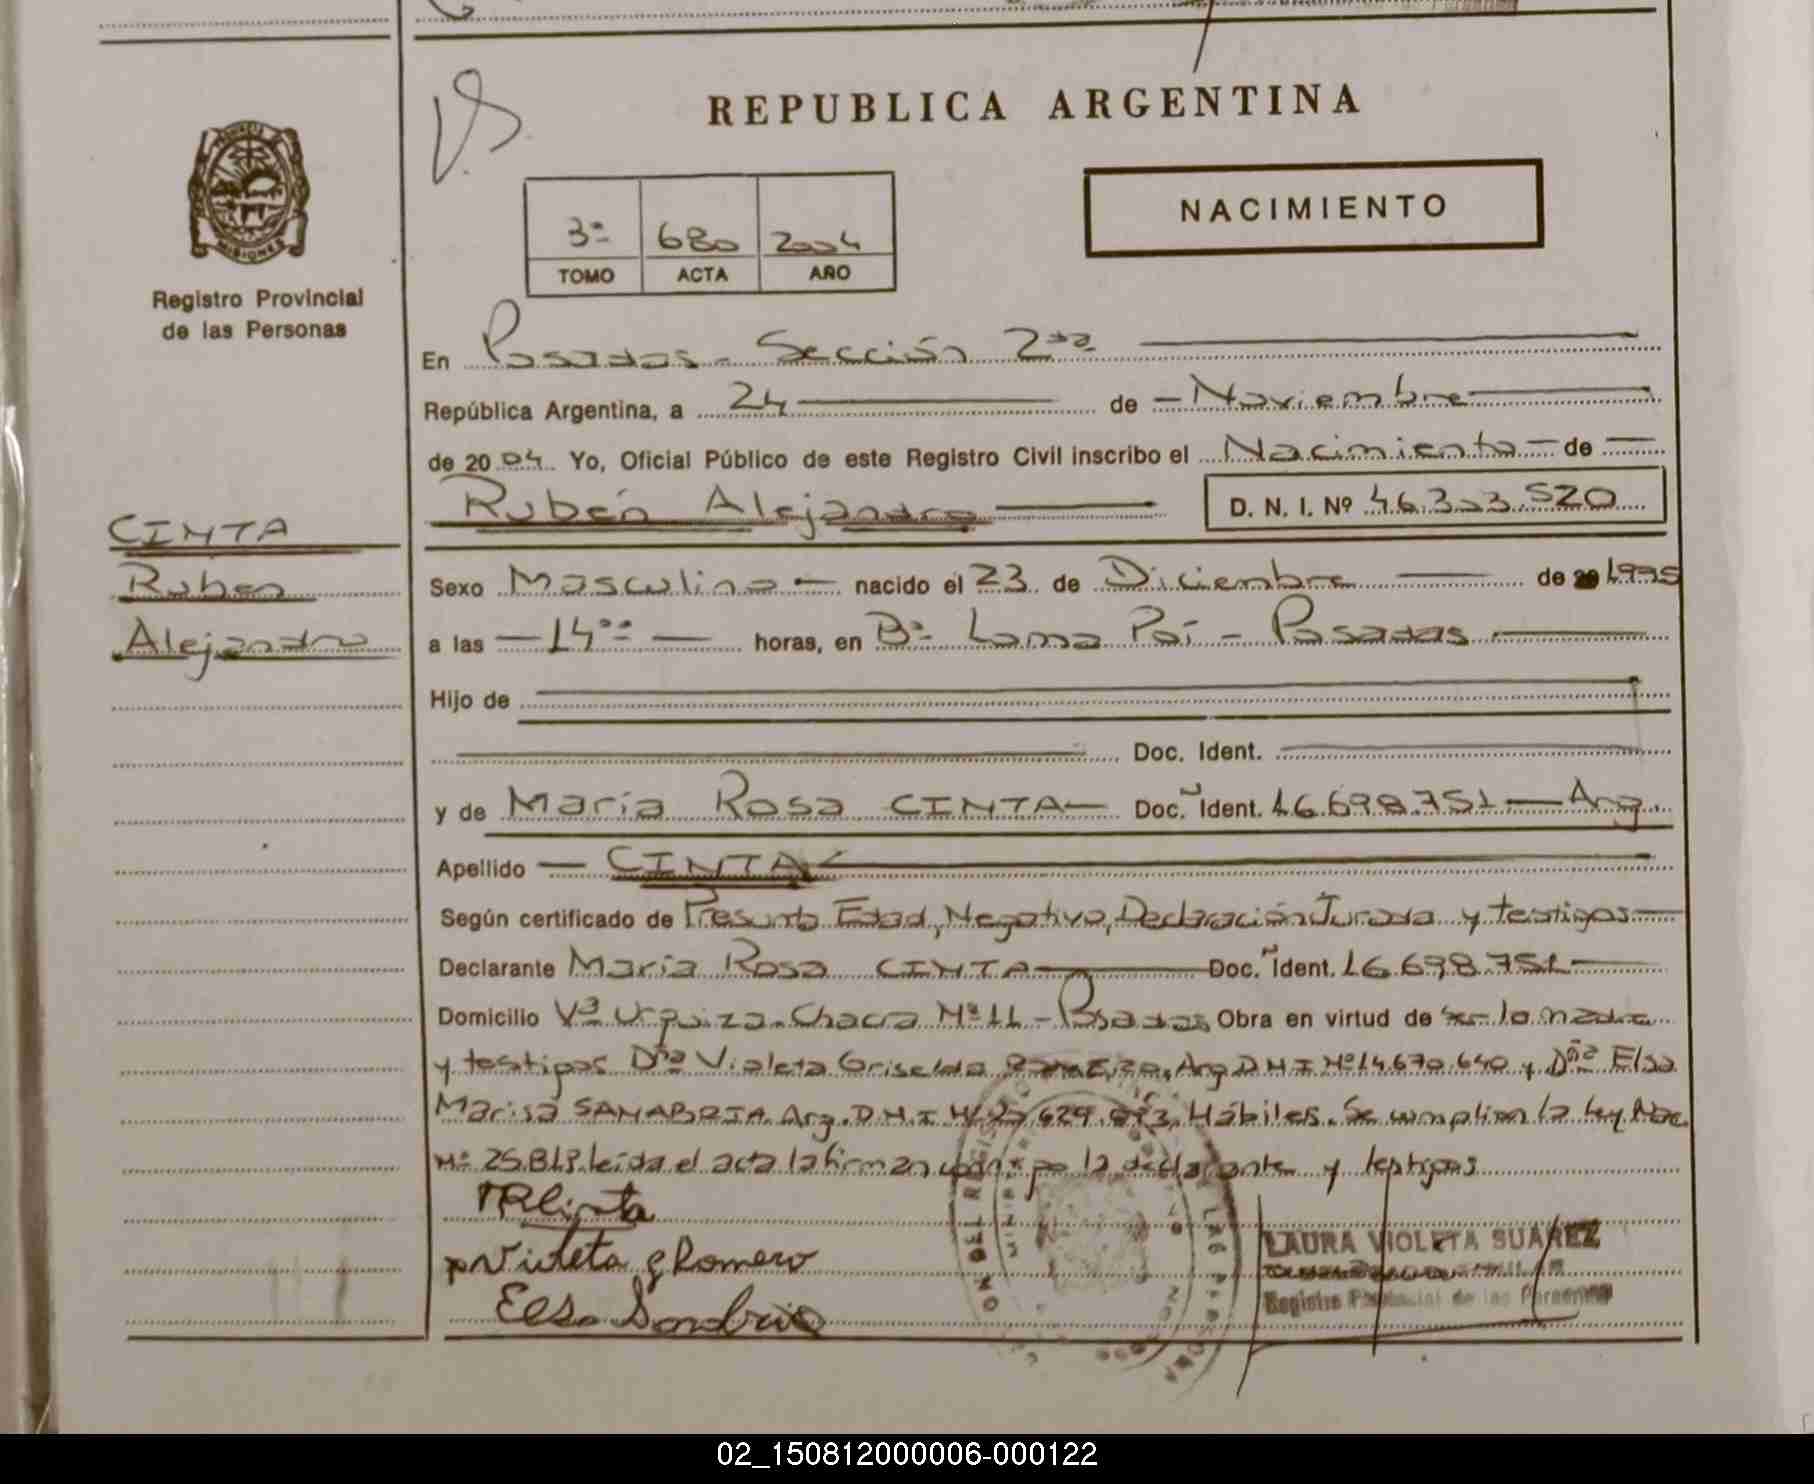 REPUBLICA ARGENTINA
NACIMIENTO
3º 680 2004
TOMO ACTA AÑO
MISIONES
Registro Provincial
de las Personas
En Posadas - Sección 2da
República Argentina, a 24 de - Noviembre
de 2004 Yo, Oficial Público de este Registro Civil inscribo el Nacimiento - de
Rubén Alejandro D. N. I. Nº 46.303.520
CINTA
Ruben
Alejandro
Sexo Masculino - nacido el 23 de Diciembre de 20 1995
a las - 14ºº - horas, en Bº Loma Poí - Posadas
Hijo de
Doc. Ident.
y de María Rosa CINTA - Doc. Ident. 16.698.751 - Arg.
Apellido - CINTA -
Según certificado de Presunta Edad, Negativo, Declaración Jurada y testigos
Declarante María Rosa CINTA Doc. Ident. 16.698.751
Domicilio Vª Urquiza - Chacra Nº 11 - Posadas Obra en virtud de ser la madre
y testigos Dña Violeta Griselda Arg D N I Nº 14.670.640 y Dña Elsa
Marisa SANABRIA Arg. D.N.I Nº 629. Hábiles. Se cumplion la ley Nac.
Nº 25.819 leída el acta la firman la declarante y testigos
MRCinta
Violeta g Romero
Elsa Sanabria
LAURA VIOLETA SUAREZ
Registro Provincial de las Personas
02_150812000006-000122